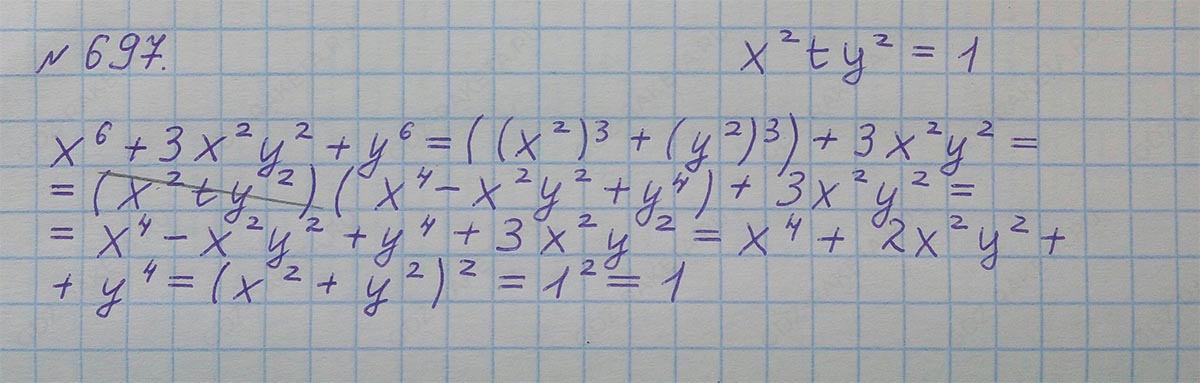 № 697. x² + y² = 1
x⁶ + 3x²y² + y⁶ = ((x²)³ + (y²)³) + 3x²y² =
= (x² + y²)(x⁴ - x²y² + y⁴) + 3x²y² =
= x⁴ - x²y² + y⁴ + 3x²y² = x⁴ + 2x²y² +
+ y⁴ = (x² + y²)² = 1² = 1